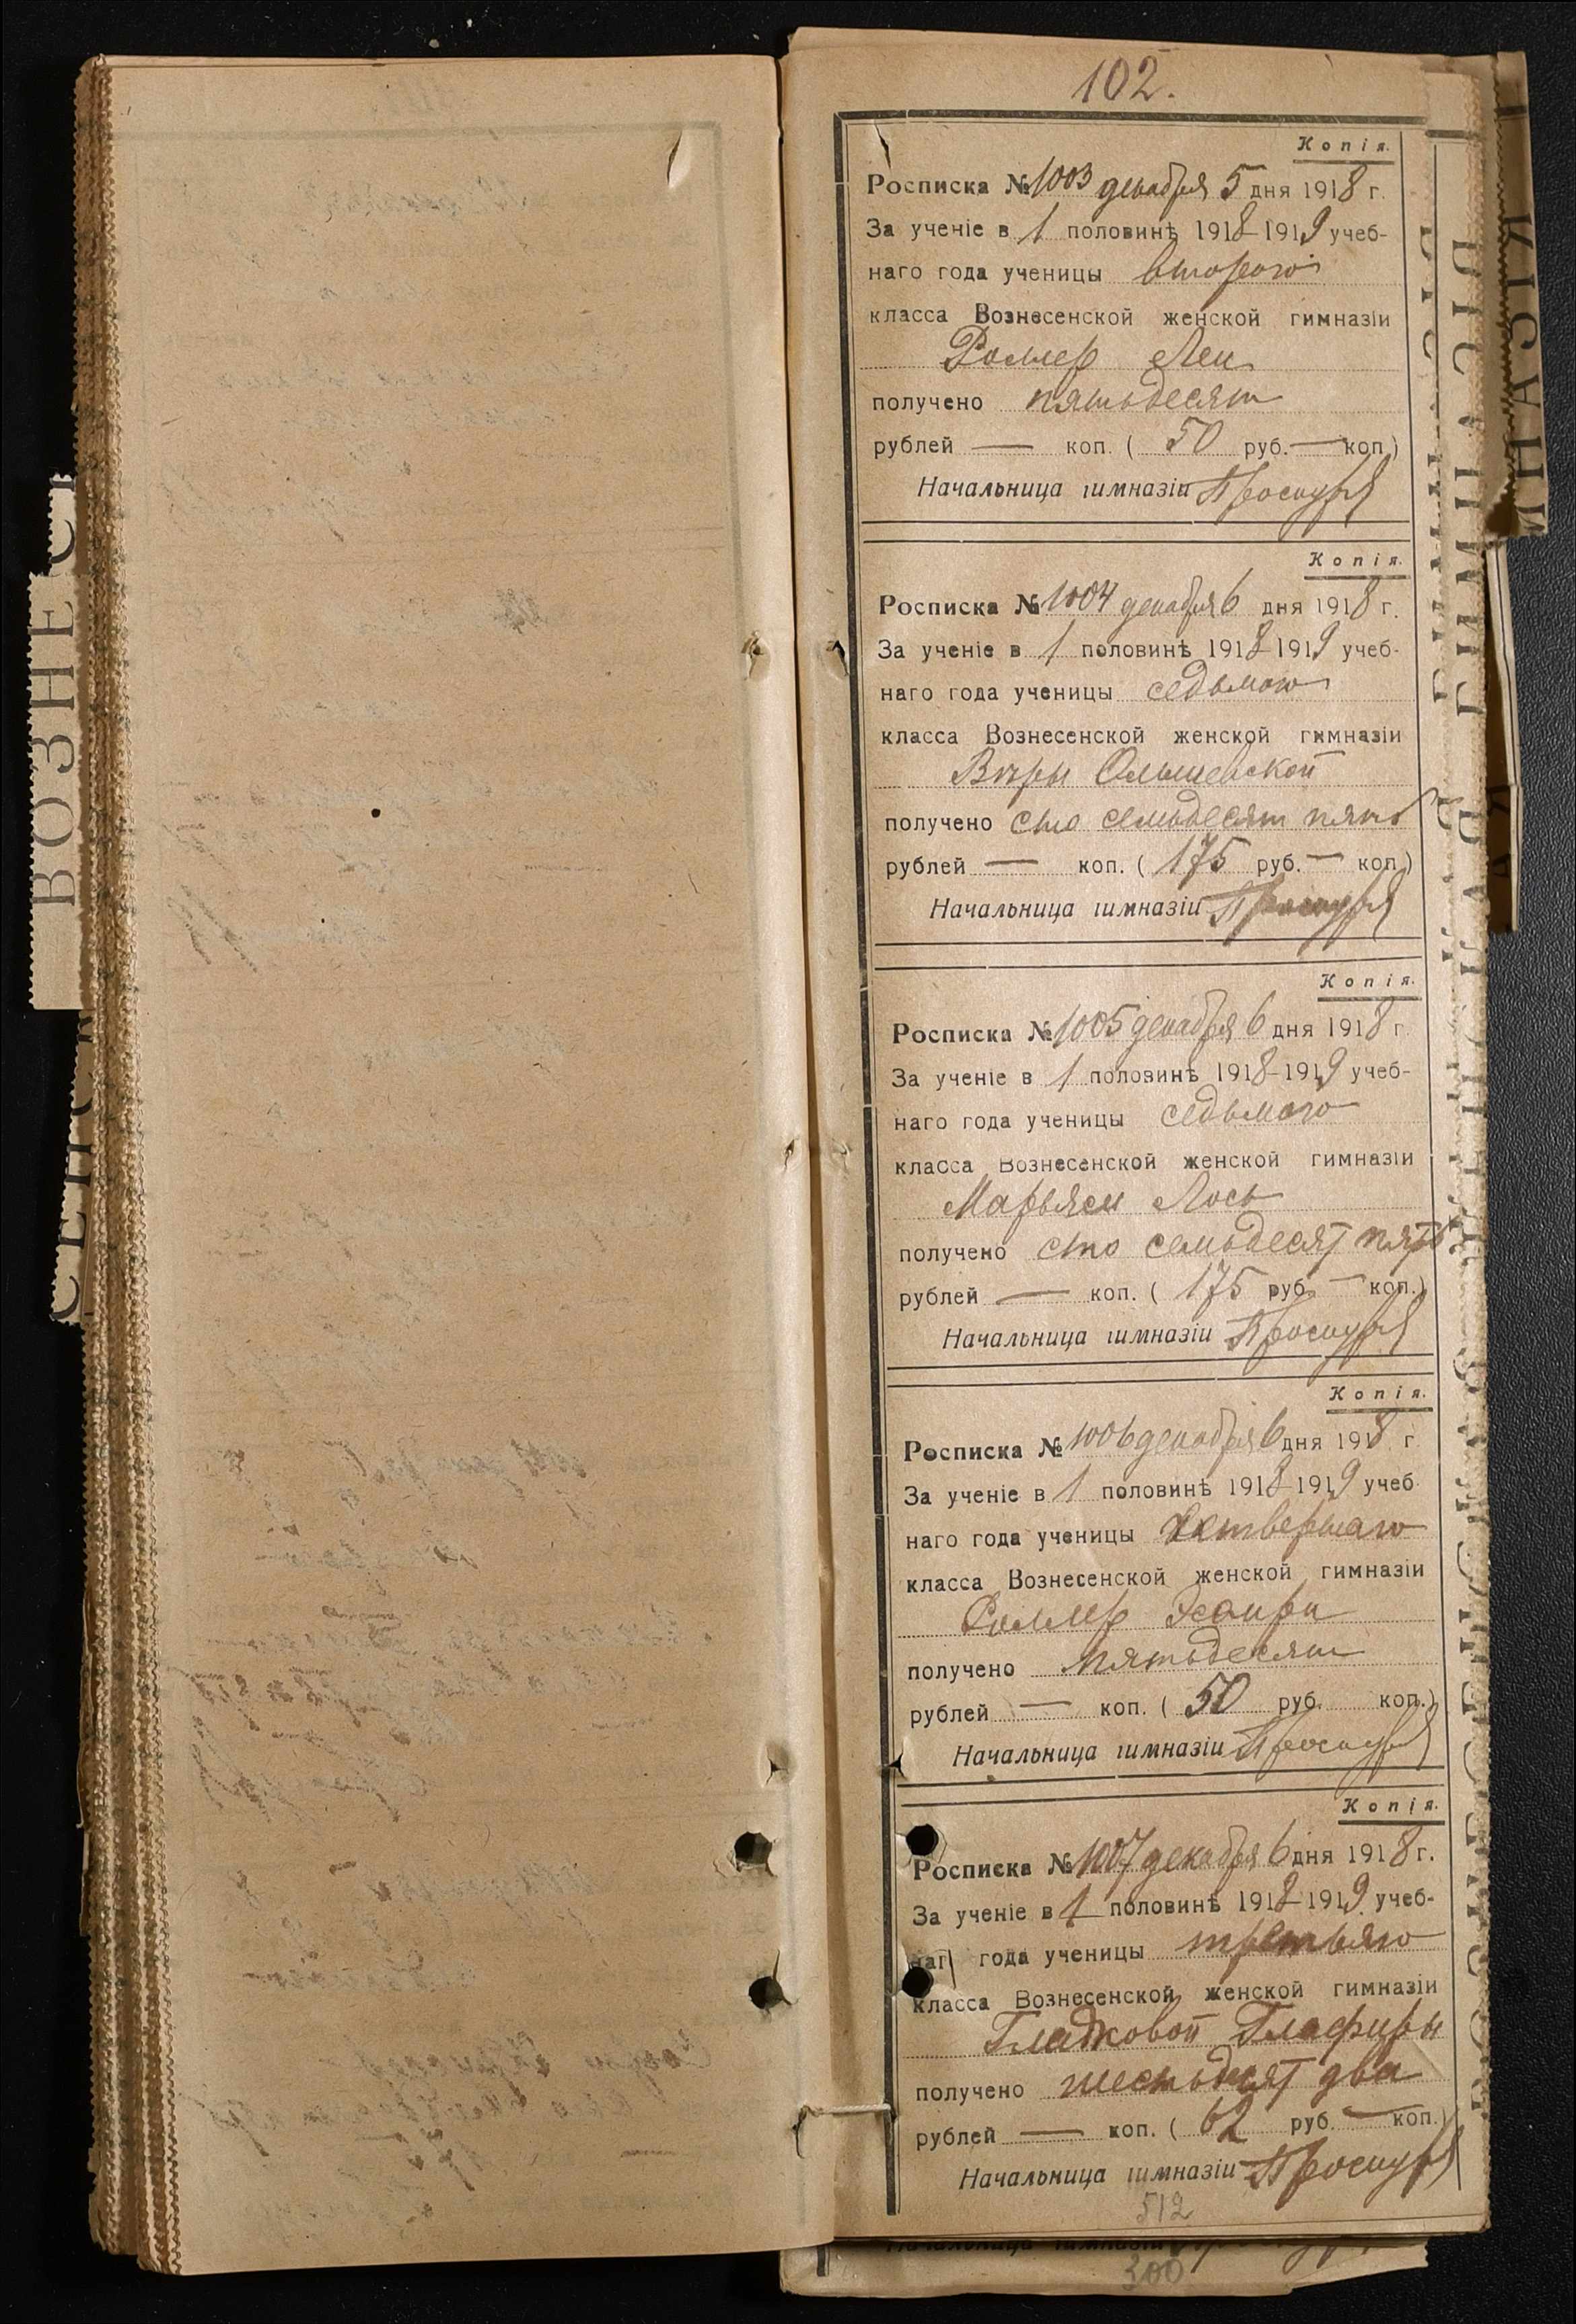 102.
Копія.
Росписка № 1003 декабря 5 дня 1918 г.
За ученіе в 1 половинѣ 1918-1919 учеб-
наго года ученицы второго
класса Вознесенской женской гимназіи
Роллер Леи
получено пятьдесят
рублей — коп. ( 50 руб. — коп.)
Начальница гимназіи
Копія.
Росписка № 1004 декабря 6 дня 1918 г.
За ученіе в 1 половинѣ 1918-1919 учеб-
наго года ученицы седьмого
класса Вознесенской женской гимназіи
Вѣры Ольшевской
получено сто семьдесят пять
рублей — коп. ( 175 руб. — коп.)
Начальница гимназіи
Копія.
Росписка № 1005 декабря 6 дня 1918 г.
За ученіе в 1 половинѣ 1918-1919 учеб-
наго года ученицы седьмого
класса Вознесенской женской гимназіи
Марьям Лось
получено сто семьдесят пять
рублей — коп. ( 175 руб. — коп.)
Начальница гимназіи
Копія.
Росписка № 1006 декабря 6 дня 1918 г.
За ученіе в 1 половинѣ 1918-1919 учеб-
наго года ученицы четвертаго
класса Вознесенской женской гимназіи
Роллер
получено пятьдесят
рублей — коп. ( 50 руб. коп.)
Начальница гимназіи
Копія.
Росписка № 1007 декабря 6 дня 1918 г.
За ученіе в 1 половинѣ 1918-1919 учеб-
наг года ученицы третьяго
класса Вознесенской женской гимназіи
Гладковой Глафиры
получено шестьдесят два
рублей — коп. ( 62 руб. — коп.)
Начальница гимназіи
512
300
ВОЗНЕС